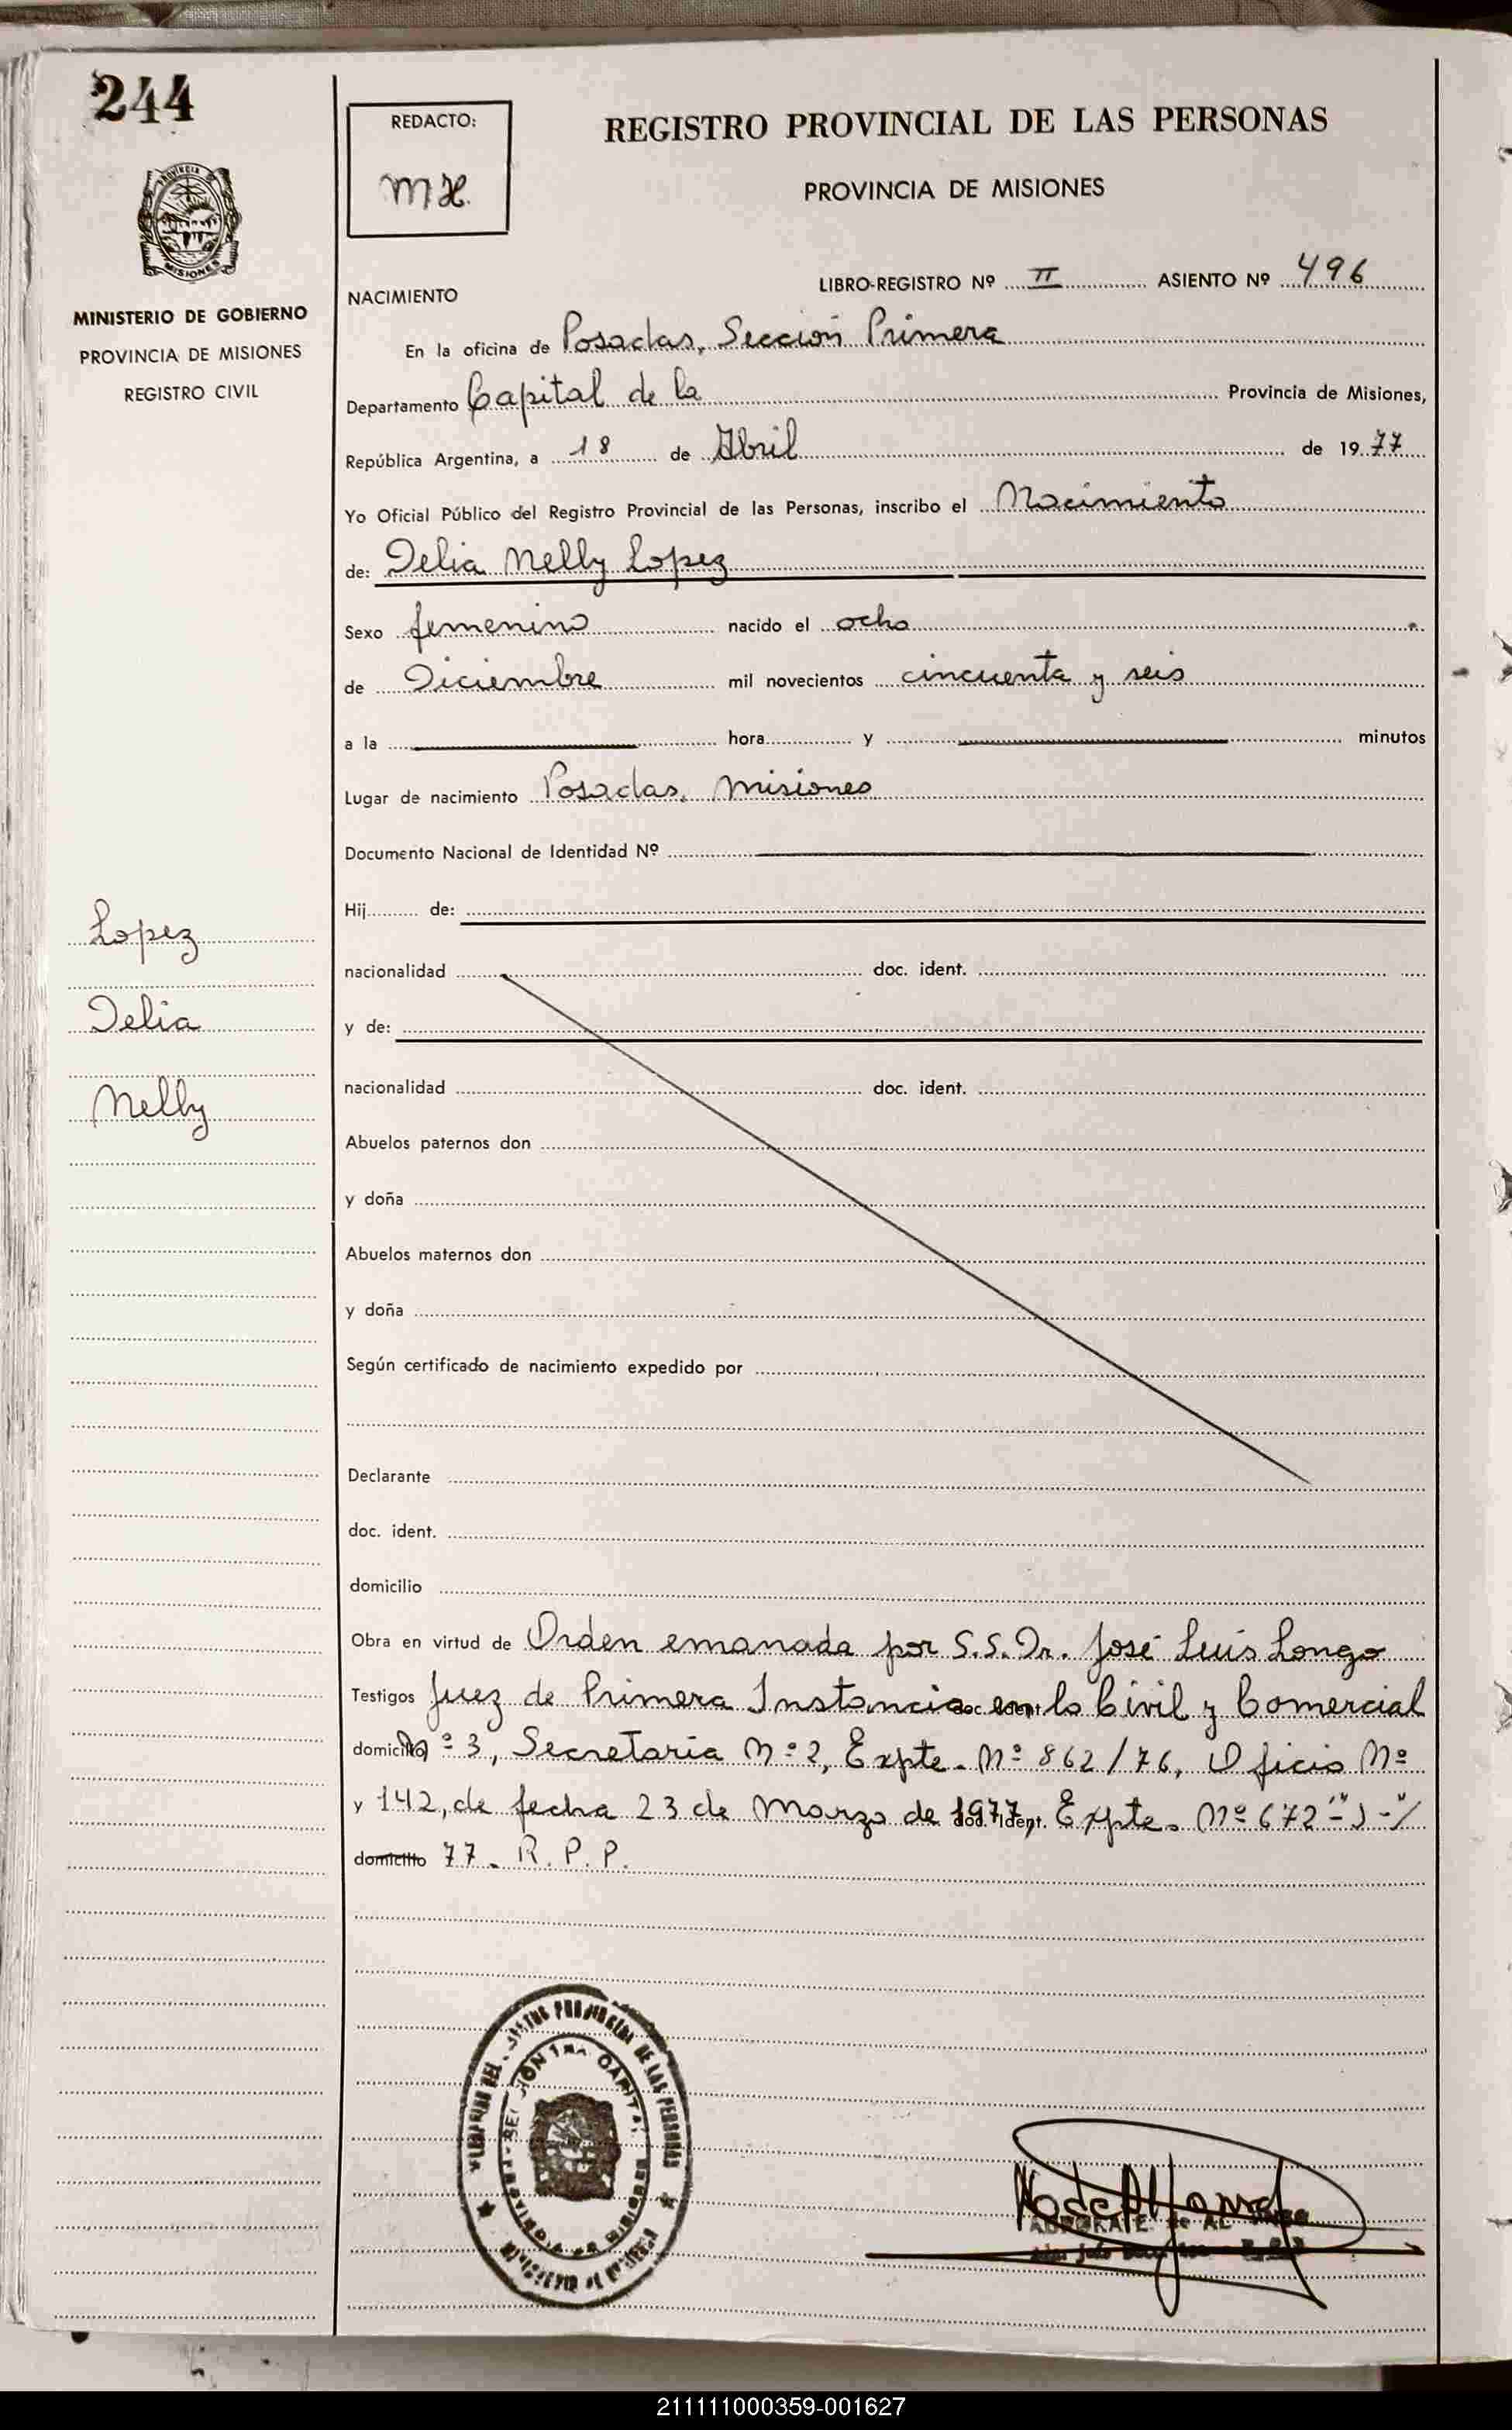 244
REDACTO:
REGISTRO PROVINCIAL DE LAS PERSONAS
PROVINCIA DE MISIONES
MINISTERIO DE GOBIERNO
PROVINCIA DE MISIONES
REGISTRO CIVIL
LIBRO-REGISTRO Nº II ASIENTO Nº 496
NACIMIENTO
En la oficina de Posadas, Sección Primera
Departamento Capital de la Provincia de Misiones,
República Argentina, a 18 de Abril de 1977
Yo Oficial Público del Registro Provincial de las Personas, inscribo el Nacimiento
de: Delia Nelly Lopez
Sexo femenino nacido el ocho
de Diciembre mil novecientos cincuenta y seis
a la hora y minutos
Lugar de nacimiento Posadas, Misiones
Documento Nacional de Identidad Nº
Hij de:
Lopez
nacionalidad doc. ident.
Delia
y de:
Nelly
nacionalidad doc. ident.
Abuelos paternos don
y doña
Abuelos maternos don
y doña
Según certificado de nacimiento expedido por
Declarante
doc. ident.
domicilio
Obra en virtud de Orden emanada por S.S. Dr. José Luis Longo
Testigos Juez de Primera Instancia en lo Civil y Comercial
domicilio Nº 3, Secretaria Nº 2, Expte. Nº 862/76, Oficio Nº
y 142, de fecha 23 de Marzo de 1977, doc. ident. Expte. Nº 672 -"J"-/
domicilio 77. R.P.P.
PROVINCIA DE MISIONES
211111000359-001627